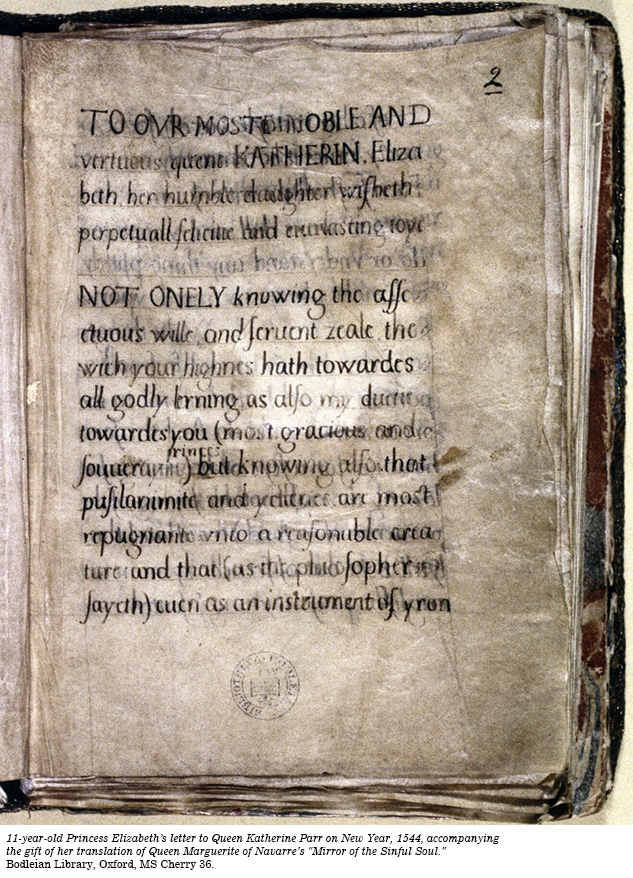 2
TO OVR MOSTE NOBLE AND
vertuous quene KATHERIN, Eliza
beth her humble daughter wisheth
perpetuall felicitie and euerlasting ioye
NOT ONELY knowing the affe
ctuous wille, and feruent zeale, the
wich your highnes hath towardes
all godly lerning, as also my duetie
towardes you (most gracious and
princes
souuerayne) but knowing also that
pusilanimite and ydlenes are most
repugnante vnto a reasonable crea
ture: and that (as the philosopher
sayeth) euen as an instrument of yron
11-year-old Princess Elizabeth's letter to Queen Katherine Parr on New Year, 1544, accompanying
the gift of her translation of Queen Marguerite of Navarre's "Mirror of the Sinful Soul."
Bodleian Library, Oxford, MS Cherry 36.